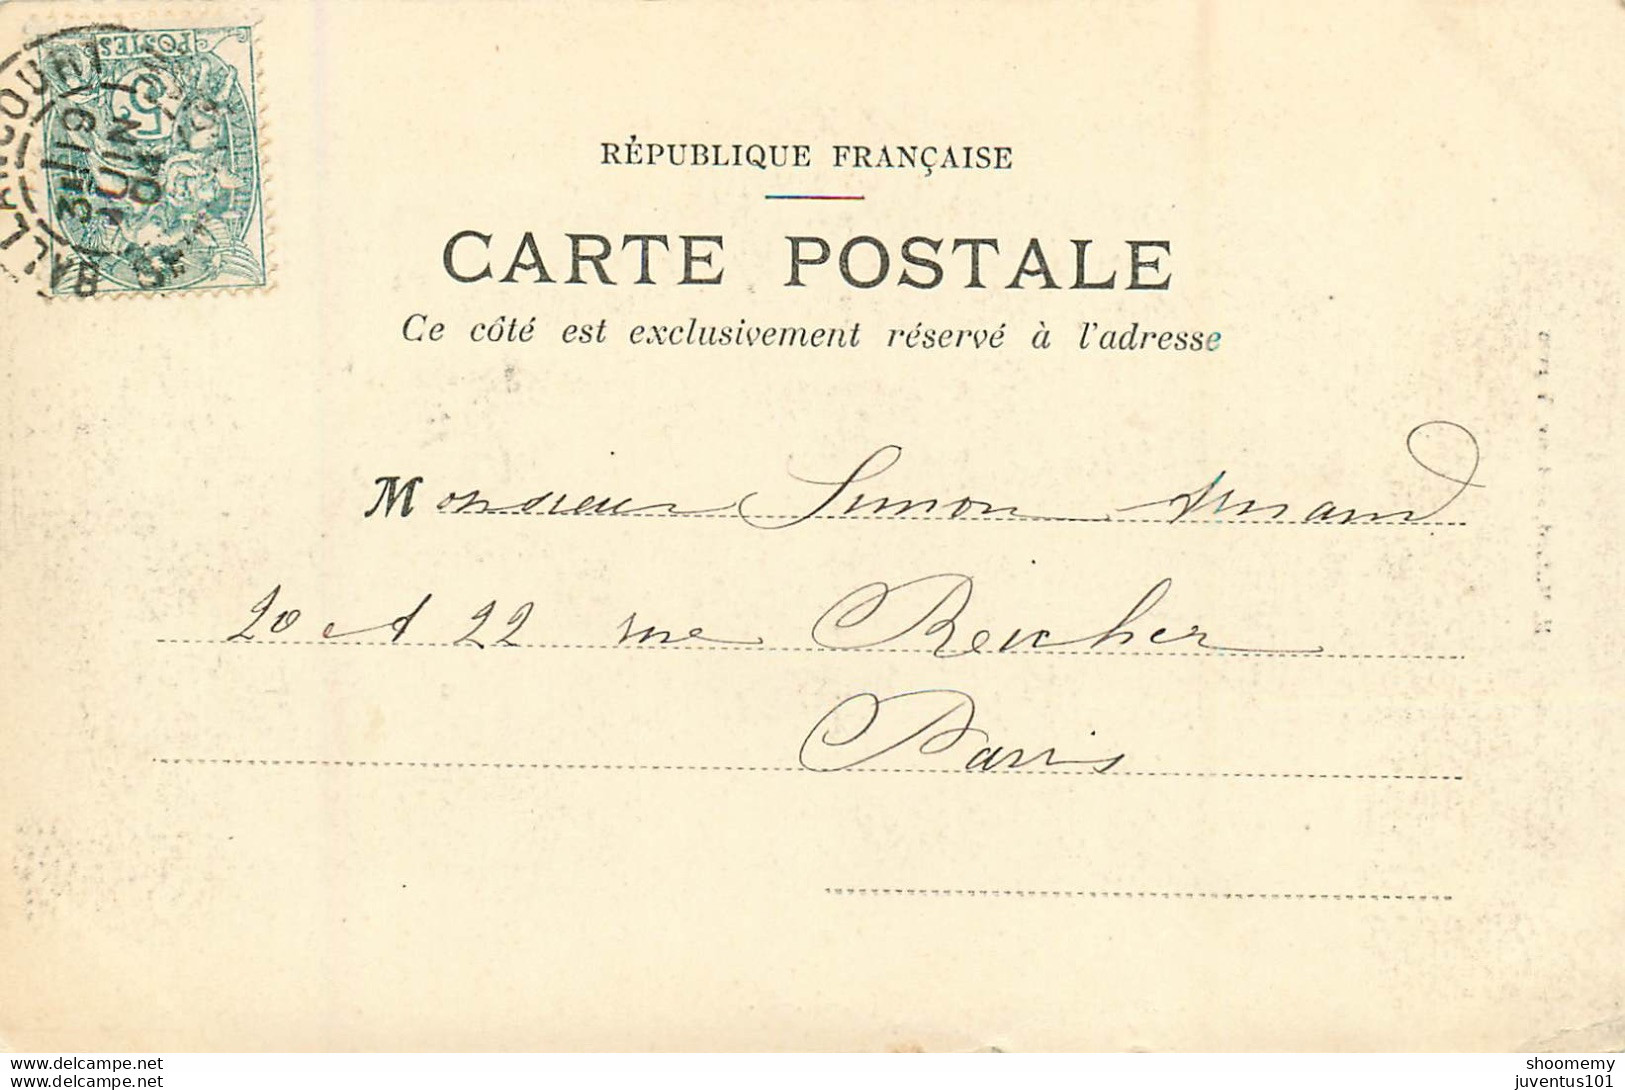 POSTES
5
BALLANCOURT
3E
19
JUIN
04
RÉPUBLIQUE FRANÇAISE
CARTE POSTALE
Ce côté est exclusivement réservé à l'adresse
Monsieur Simon Armand
20 et 22 rue Richer
Paris
delcampe.net
shoomemy
juventus101